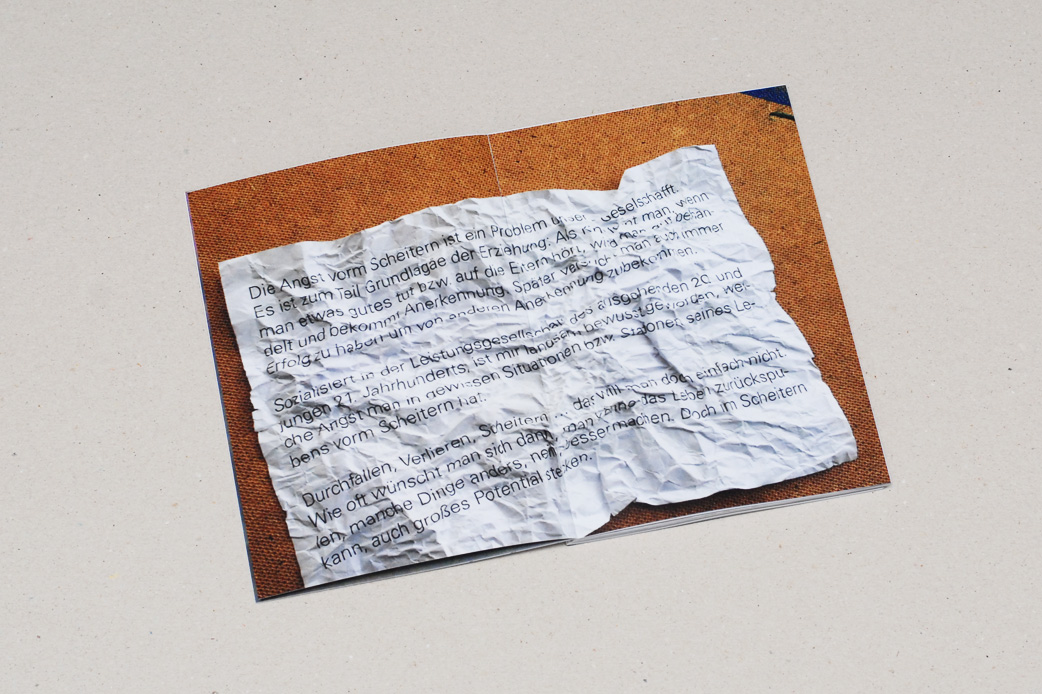 Die Angst vorm Scheitern ist ein Problem unser Geselschafft.
Es ist zum Teil Grundlagae der Erziehung. Als Kind lernt man, wenn
man etwas gutes tut bzw. auf die Eltern hört, wird man gut behan-
delt und bekommt Anerkennung. Später versucht man immer
Erfolg zu haben um von anderen Anerkennung zubekommen.
Sozialisiert in der Leistungsgesellschaft des ausgehenden 20. und
jungen 21. Jahrhunderts, ist mir bewusst geworden, wel-
che Angst man in gewissen Situationen bzw. Stationen seines Le-
bens vorm Scheitern hat.
Durchfallen, Verlieren, Scheitern das will man doch einfach nicht.
Wie oft wünscht man sich dann, man könne das Leben zurückspu-
len, manche Dinge anders, nein bessermachen. Doch im Scheitern
kann, auch großes Potential stecken.